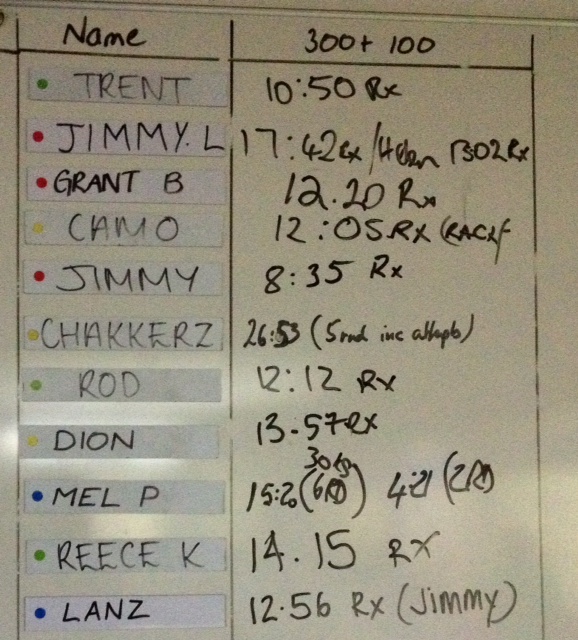 Name 300+ 100
TRENT 10:50 Rx
JIMMY.L 17:42Rx /Helen 13:02Rx
GRANT B 12.20 Rx
CAMO 12:05 RX (RACK)
JIMMY 8:35 Rx
CHAKKERZ 26:53 (5rnd inc attempts)
ROD 12:12 Rx
DION 13.57RX
30kg
MEL P 15:20 (6RD) 4:21 (2RD)
REECE K 14.15 RX
LANZ 12.56 Rx (Jimmy)